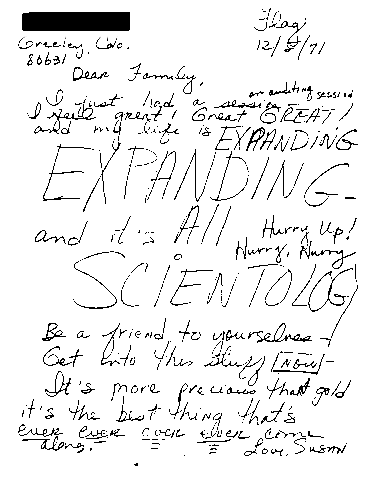 Flag
12/8/71
Greeley, Colo.
80631
Dear Family,
an auditing session
I just had a session
I feel great! Great GREAT!
and my life is EXPANDING
EXPANDING -
and it's All Hurry Up!
Hurry, Hurry
SCIENTOLOGY
Be a friend to yourselves -
Get into this stuff NOW! -
It's more precious than gold
it's the best thing that's
ever ever ever ever come
along. Love, SUSAN